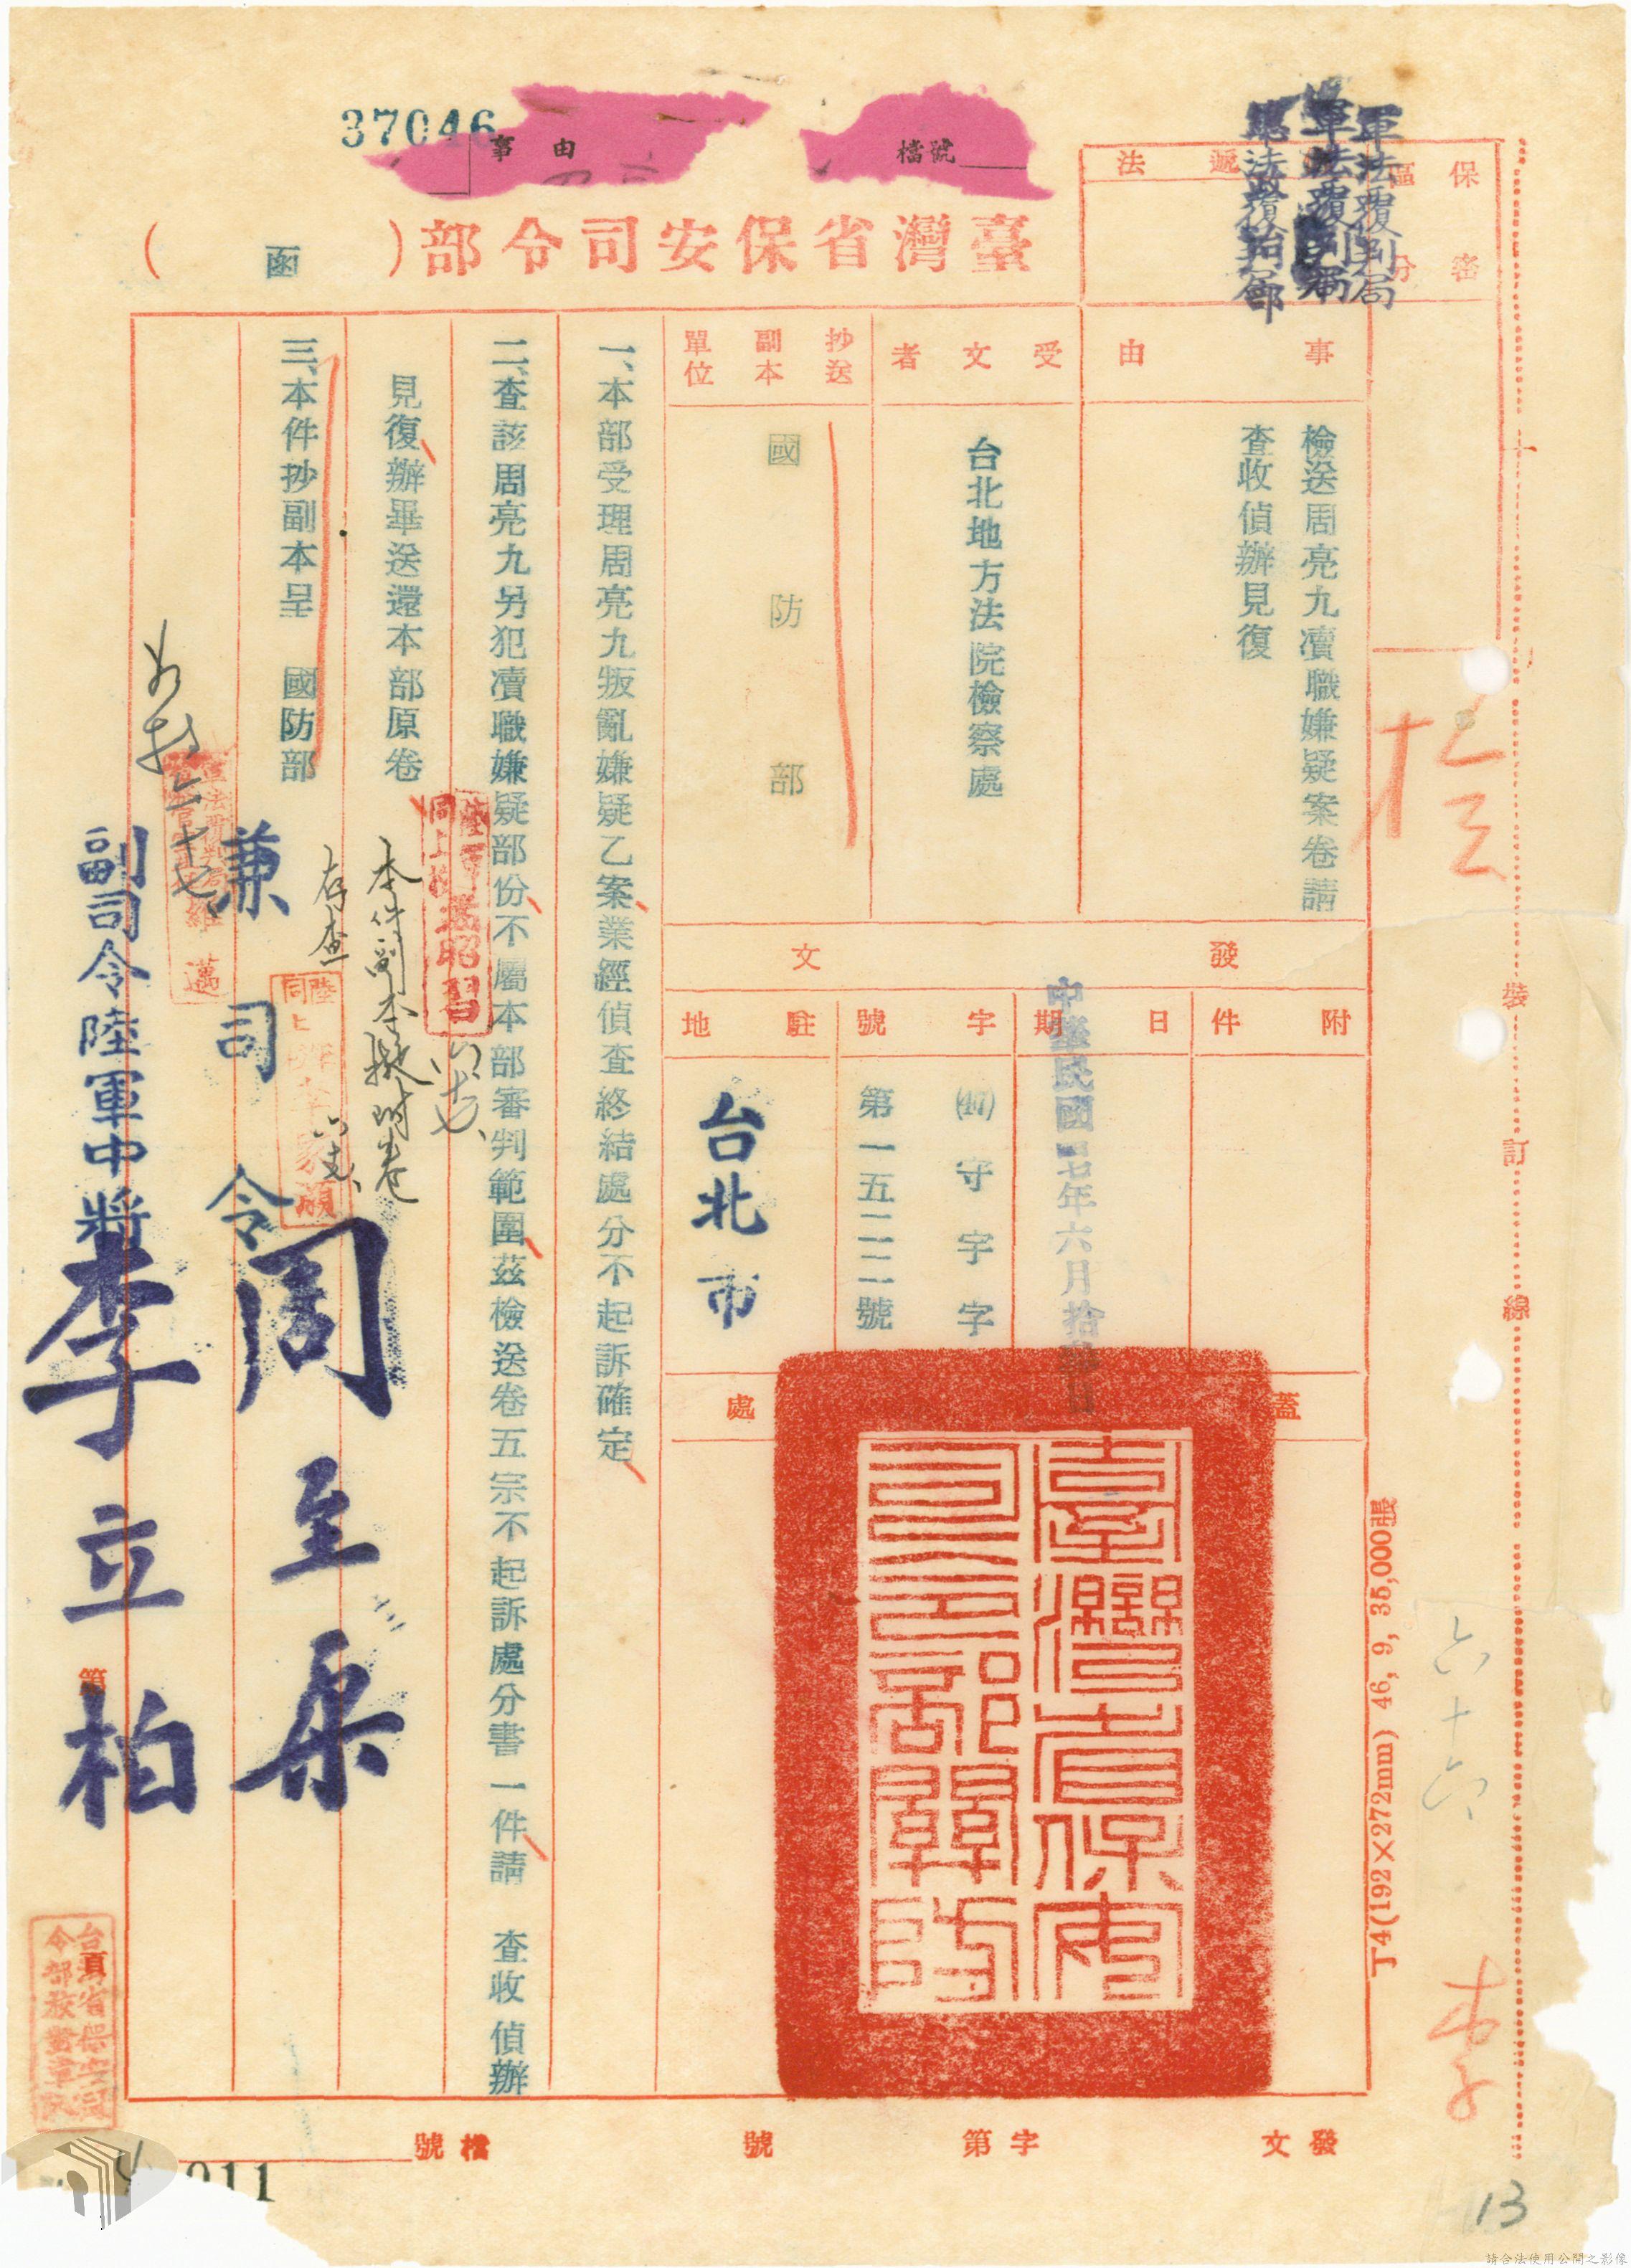 37046
事由
檔號
臺灣省保安司令部(函)
保密
區分
遞法
軍法覆判局
事由
檢送周亮九瀆職嫌疑案卷請
查收偵辦見復
受文者
台北地方法院檢察處
抄送副本單位
國防部
發文
附件
日期
中華民國四七年六月拾
字號
(47)守字字
第一五二二號
駐地
台北市
蓋
處
臺灣省保安司令部關防
一、本部受理周亮九叛亂嫌疑乙案業經偵查終結處分不起訴確定
二、查該周亮九另犯瀆職嫌疑部份不屬本部審判範圍茲檢送卷五宗不起訴處分書一件請 查收偵辦
見復辦畢送還本部原卷
三、本件抄副本呈 國防部
本件副本擬附卷
存查
兼司令周至柔
副司令陸軍中將李立柏
裝訂線
丁4(192×272mm) 46, 9, 35,000張
六十六
李
發文
字第
號
檔號
011
13
請合法使用公開之影像